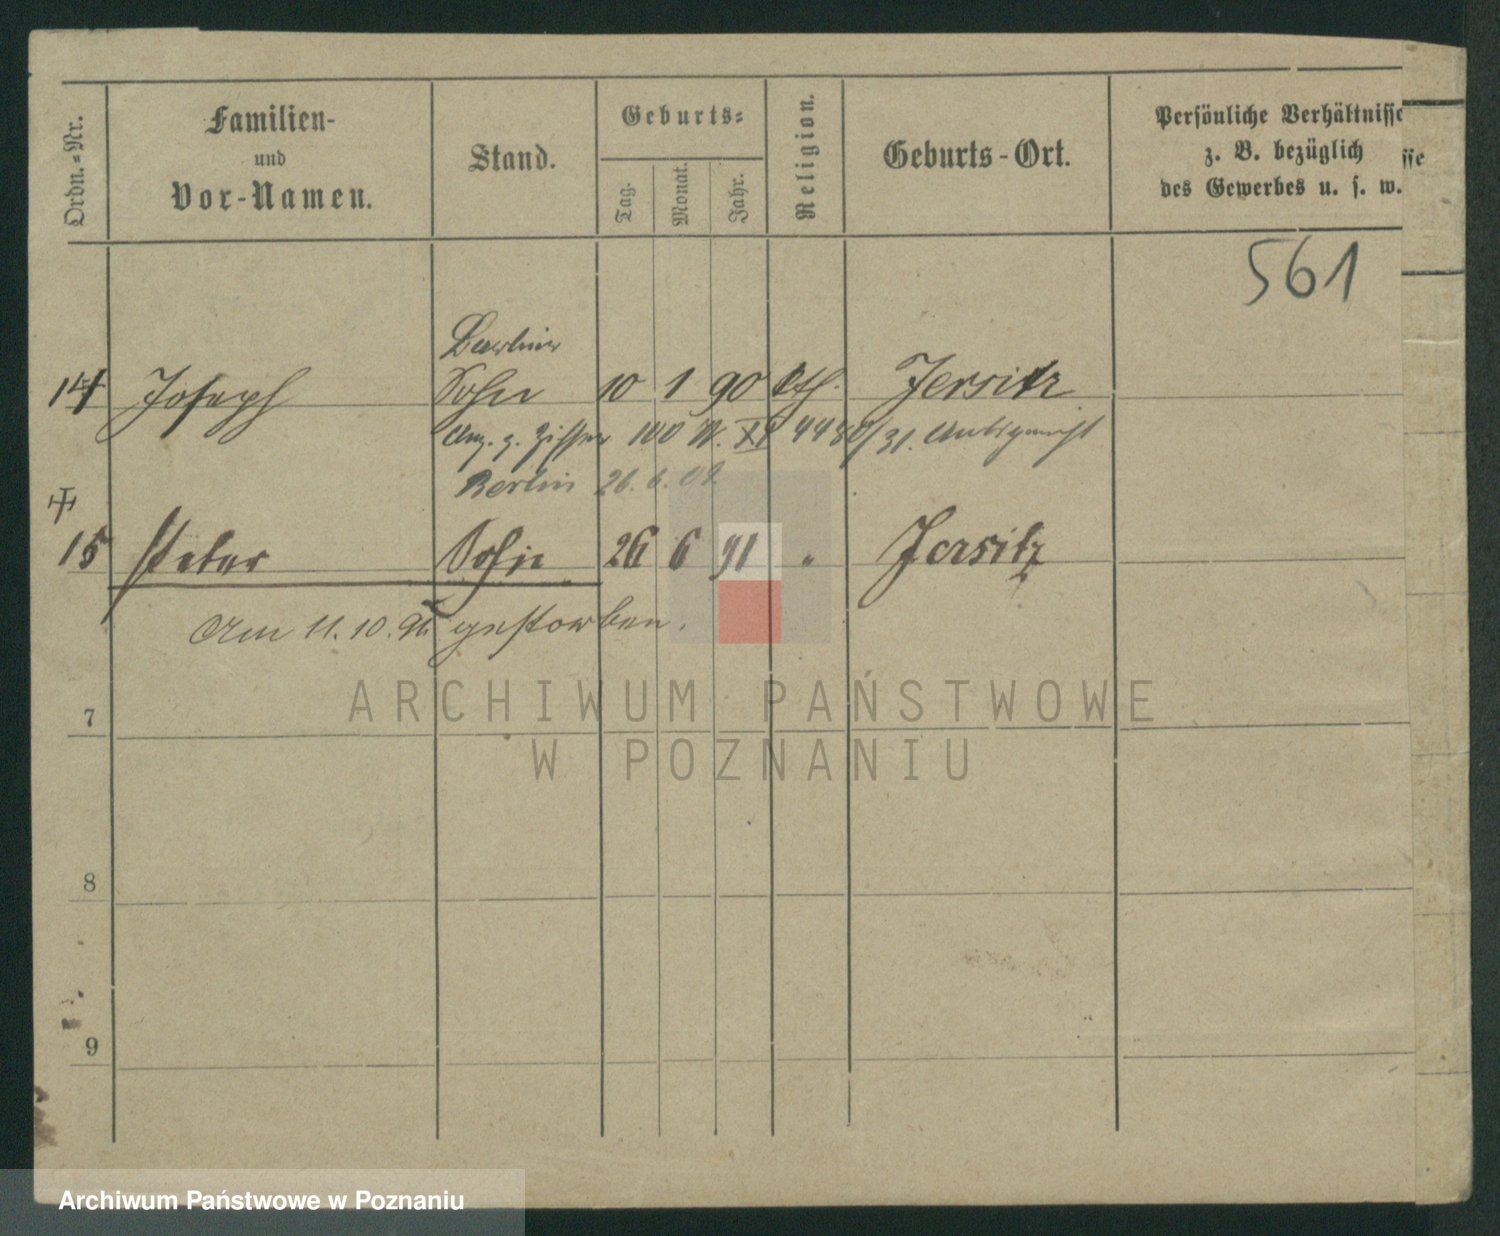 Ordn.-Nr.
Familien-
und
Vor-Namen.
Stand.
Geburts-
Tag.
Monat.
Jahr.
Religion.
Geburts-Ort.
Persönliche Verhältnisse
z. B. bezüglich
des Gewerbes u. s. w.
sse
561
14 Joseph Sohn 10 1 90 kth. Jersitz
100 XI
Berlin 26. 6. 09.
15 Peter Sohn 26 6 91 " Jersitz
Am 11. 10. gestorben.
7
8
9
ARCHIWUM PAŃSTWOWE
W POZNANIU
Archiwum Państwowe w Poznaniu